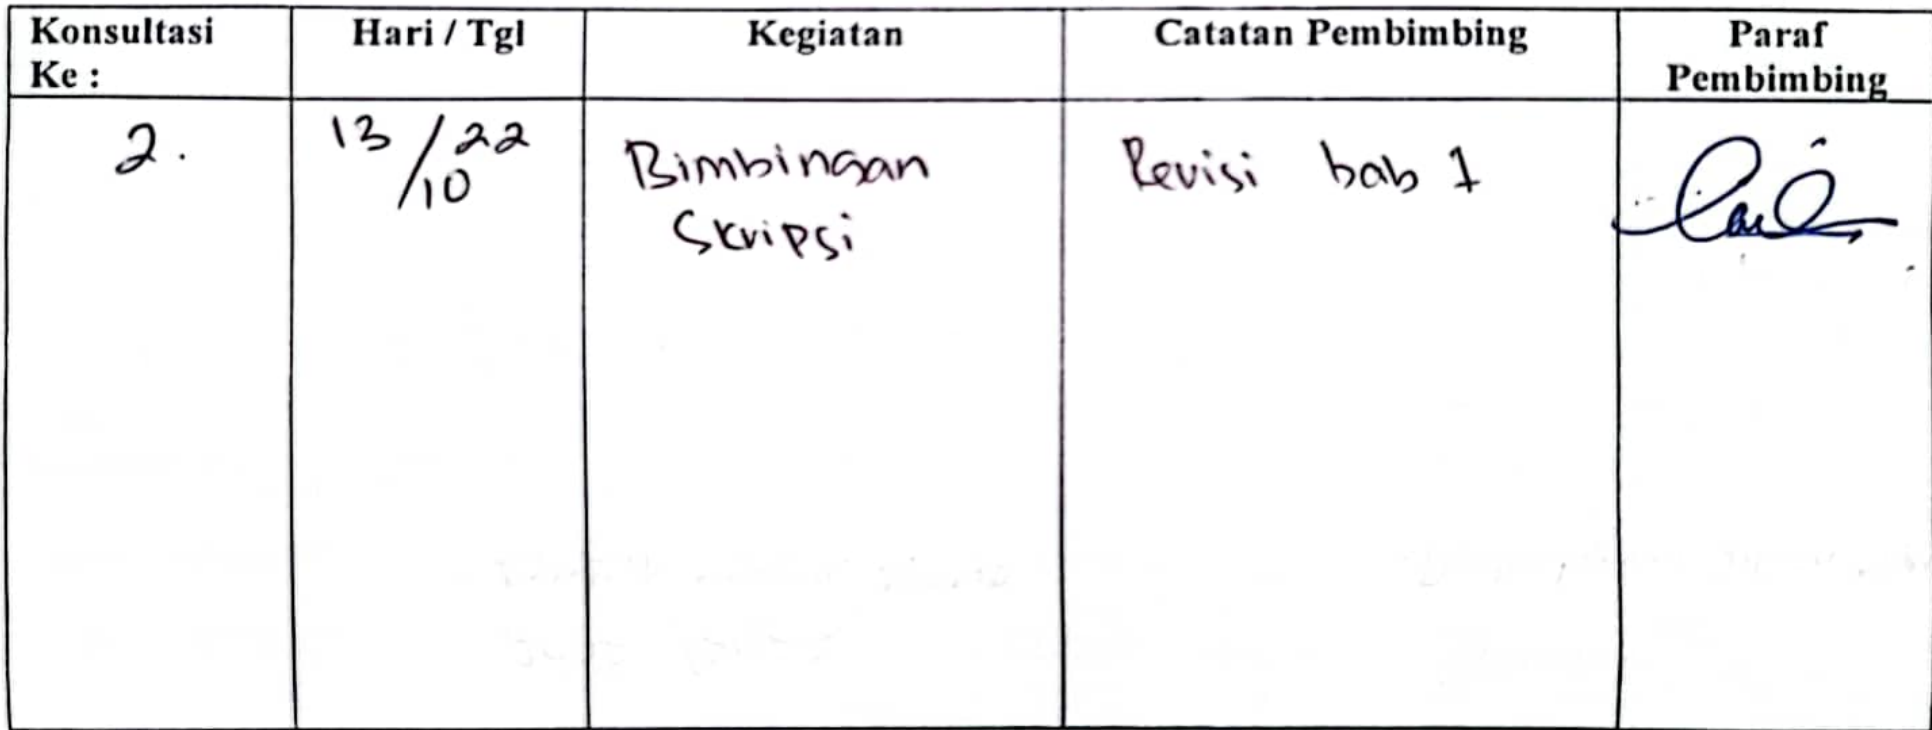 Konsultasi Ke :
Hari / Tgl
Kegiatan
Catatan Pembimbing
Paraf Pembimbing
2.
13/10 22
Bimbingan
Skripsi
Revisi bab 1